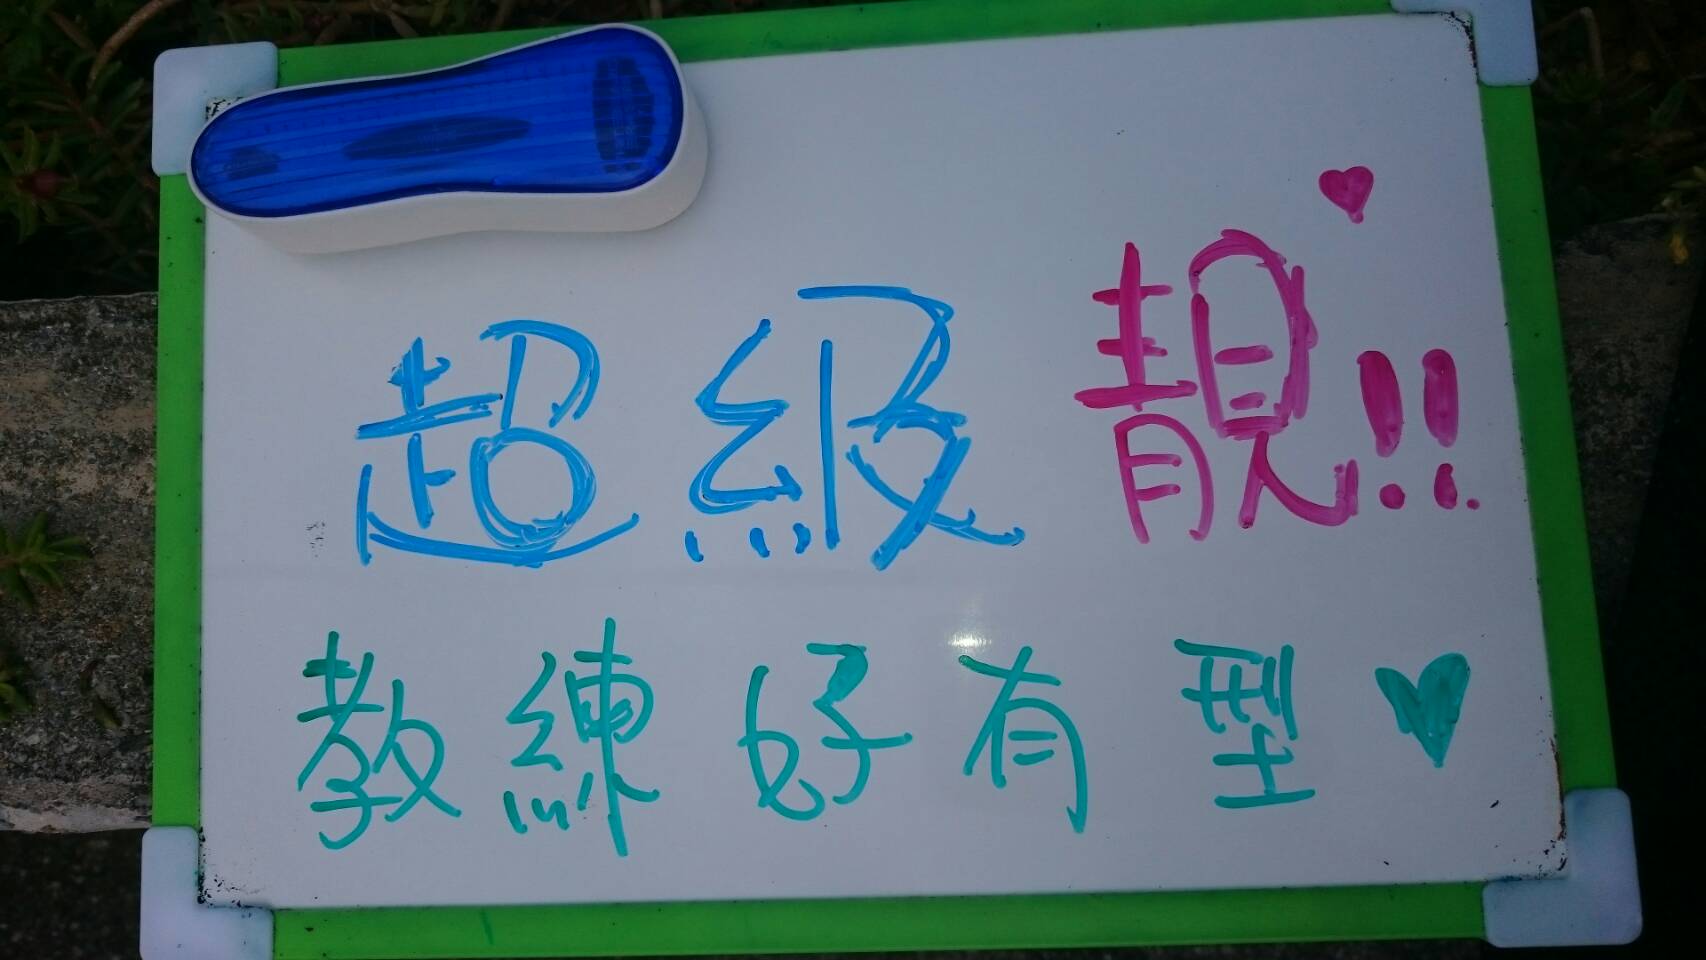 超級靚!!
教練好有型